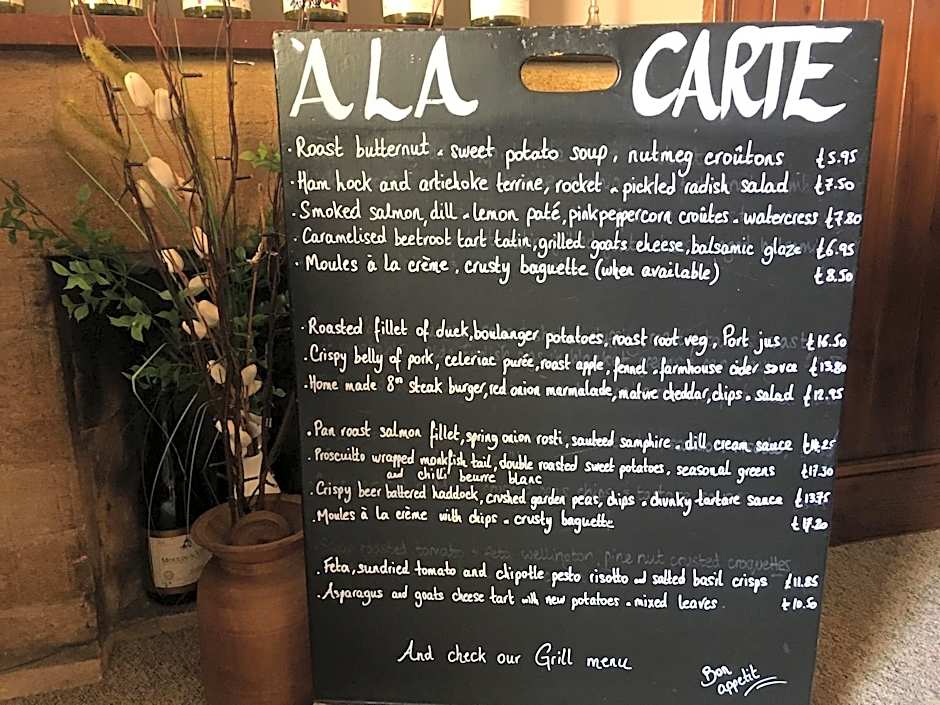 À LA CARTE
· Roast butternut & sweet potato soup, nutmeg croûtons £5.95
· Ham hock and artichoke terrine, rocket & pickled radish salad £7.50
· Smoked salmon, dill & lemon paté, pink peppercorn croûtes & watercress £7.80
· Caramelised beetroot tart tatin, grilled goats cheese, balsamic glaze £6.95
· Moules à la crème, crusty baguette (when available) £8.50
· Roasted fillet of duck, boulanger potatoes, roast root veg, Port jus £16.50
· Crispy belly of pork, celeriac purée, roast apple, fennel & farmhouse cider sauce £13.80
· Home made 8oz steak burger, red onion marmalade, mature cheddar, chips & salad £12.95
· Pan roast salmon fillet, spring onion rosti, sauteed samphire & dill cream sauce
· Proscuitto wrapped monkfish tail, double roasted sweet potatoes, seasonal greens £17.30
and chilli beurre blanc
· Crispy beer battered haddock, crushed garden peas, chips & chunky tartare sauce £13.75
· Moules à la crème with chips & crusty baguette
· Feta, sundried tomato and chipotle pesto risotto and salted basil crisps £11.85
· Asparagus and goats cheese tart with new potatoes & mixed leaves £10.50
And check our Grill menu
Bon
appetit